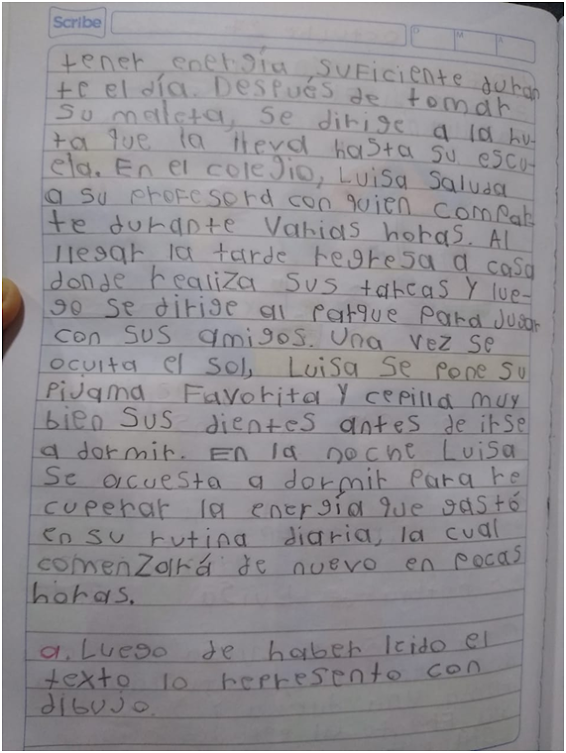 Scribe
D M A
tener energía suficiente duran
te el día. Después de tomar
su maleta, se dirige a la ru-
ta que la lleva hasta su escu-
ela. En el colegio, Luisa saluda
a su profesora con quien compar
te durante varias horas. Al
llegar la tarde regresa a casa
donde realiza sus tareas y lue-
go se dirige al parque para jugar
con sus amigos. Una vez se
oculta el sol, Luisa se pone su
pijama favorita y cepilla muy
bien sus dientes antes de irse
a dormir. En la noche Luisa
se acuesta a dormir para re
cuperar la energía que gastó
en su rutina diaria, la cual
comenzará de nuevo en pocas
horas.
a. Luego de haber leido el
texto lo represento con
dibujo.